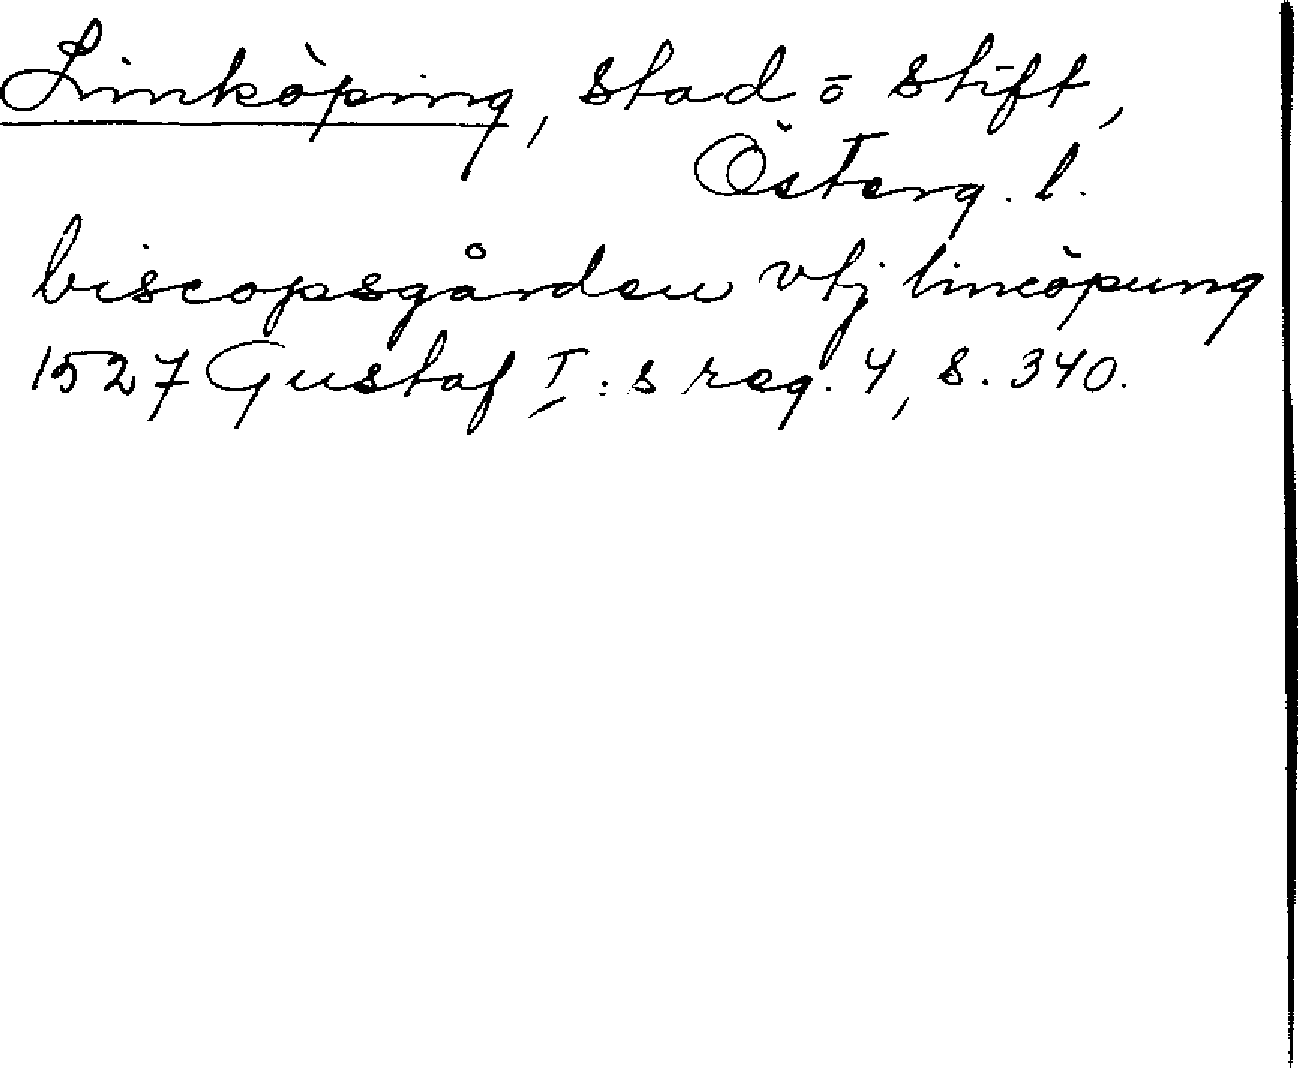 Linköping, stad o stift,
Österg. l.
biscopsgården vtj lincöpung
1527 Gustaf I:s reg. 4, s. 340.